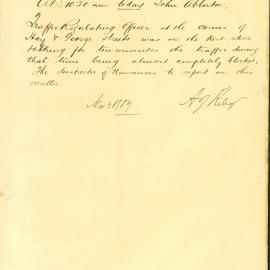 At 10.30 am today John
Traffic Regulating Officer at the corner of
Hay & George Streets was on the
talking for ten minutes the traffic during
that time being almost completely blocked.
The Inspector of Nuisances to report on this
matter.
Nov